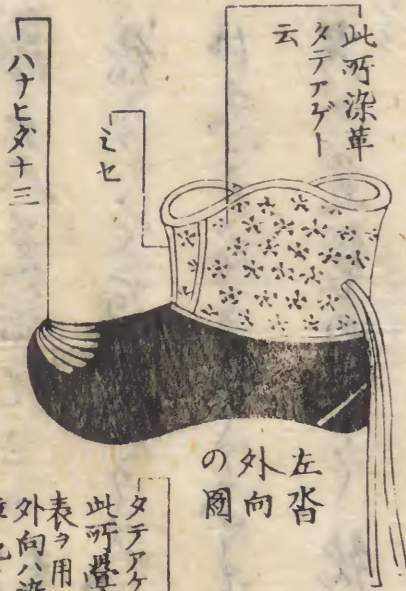 此所染革
タテアゲト
云
ミセ
ハナヒダ十三
左沓
外向
の圖
タテアケ
此所疊
表ヲ用
外向ハ染